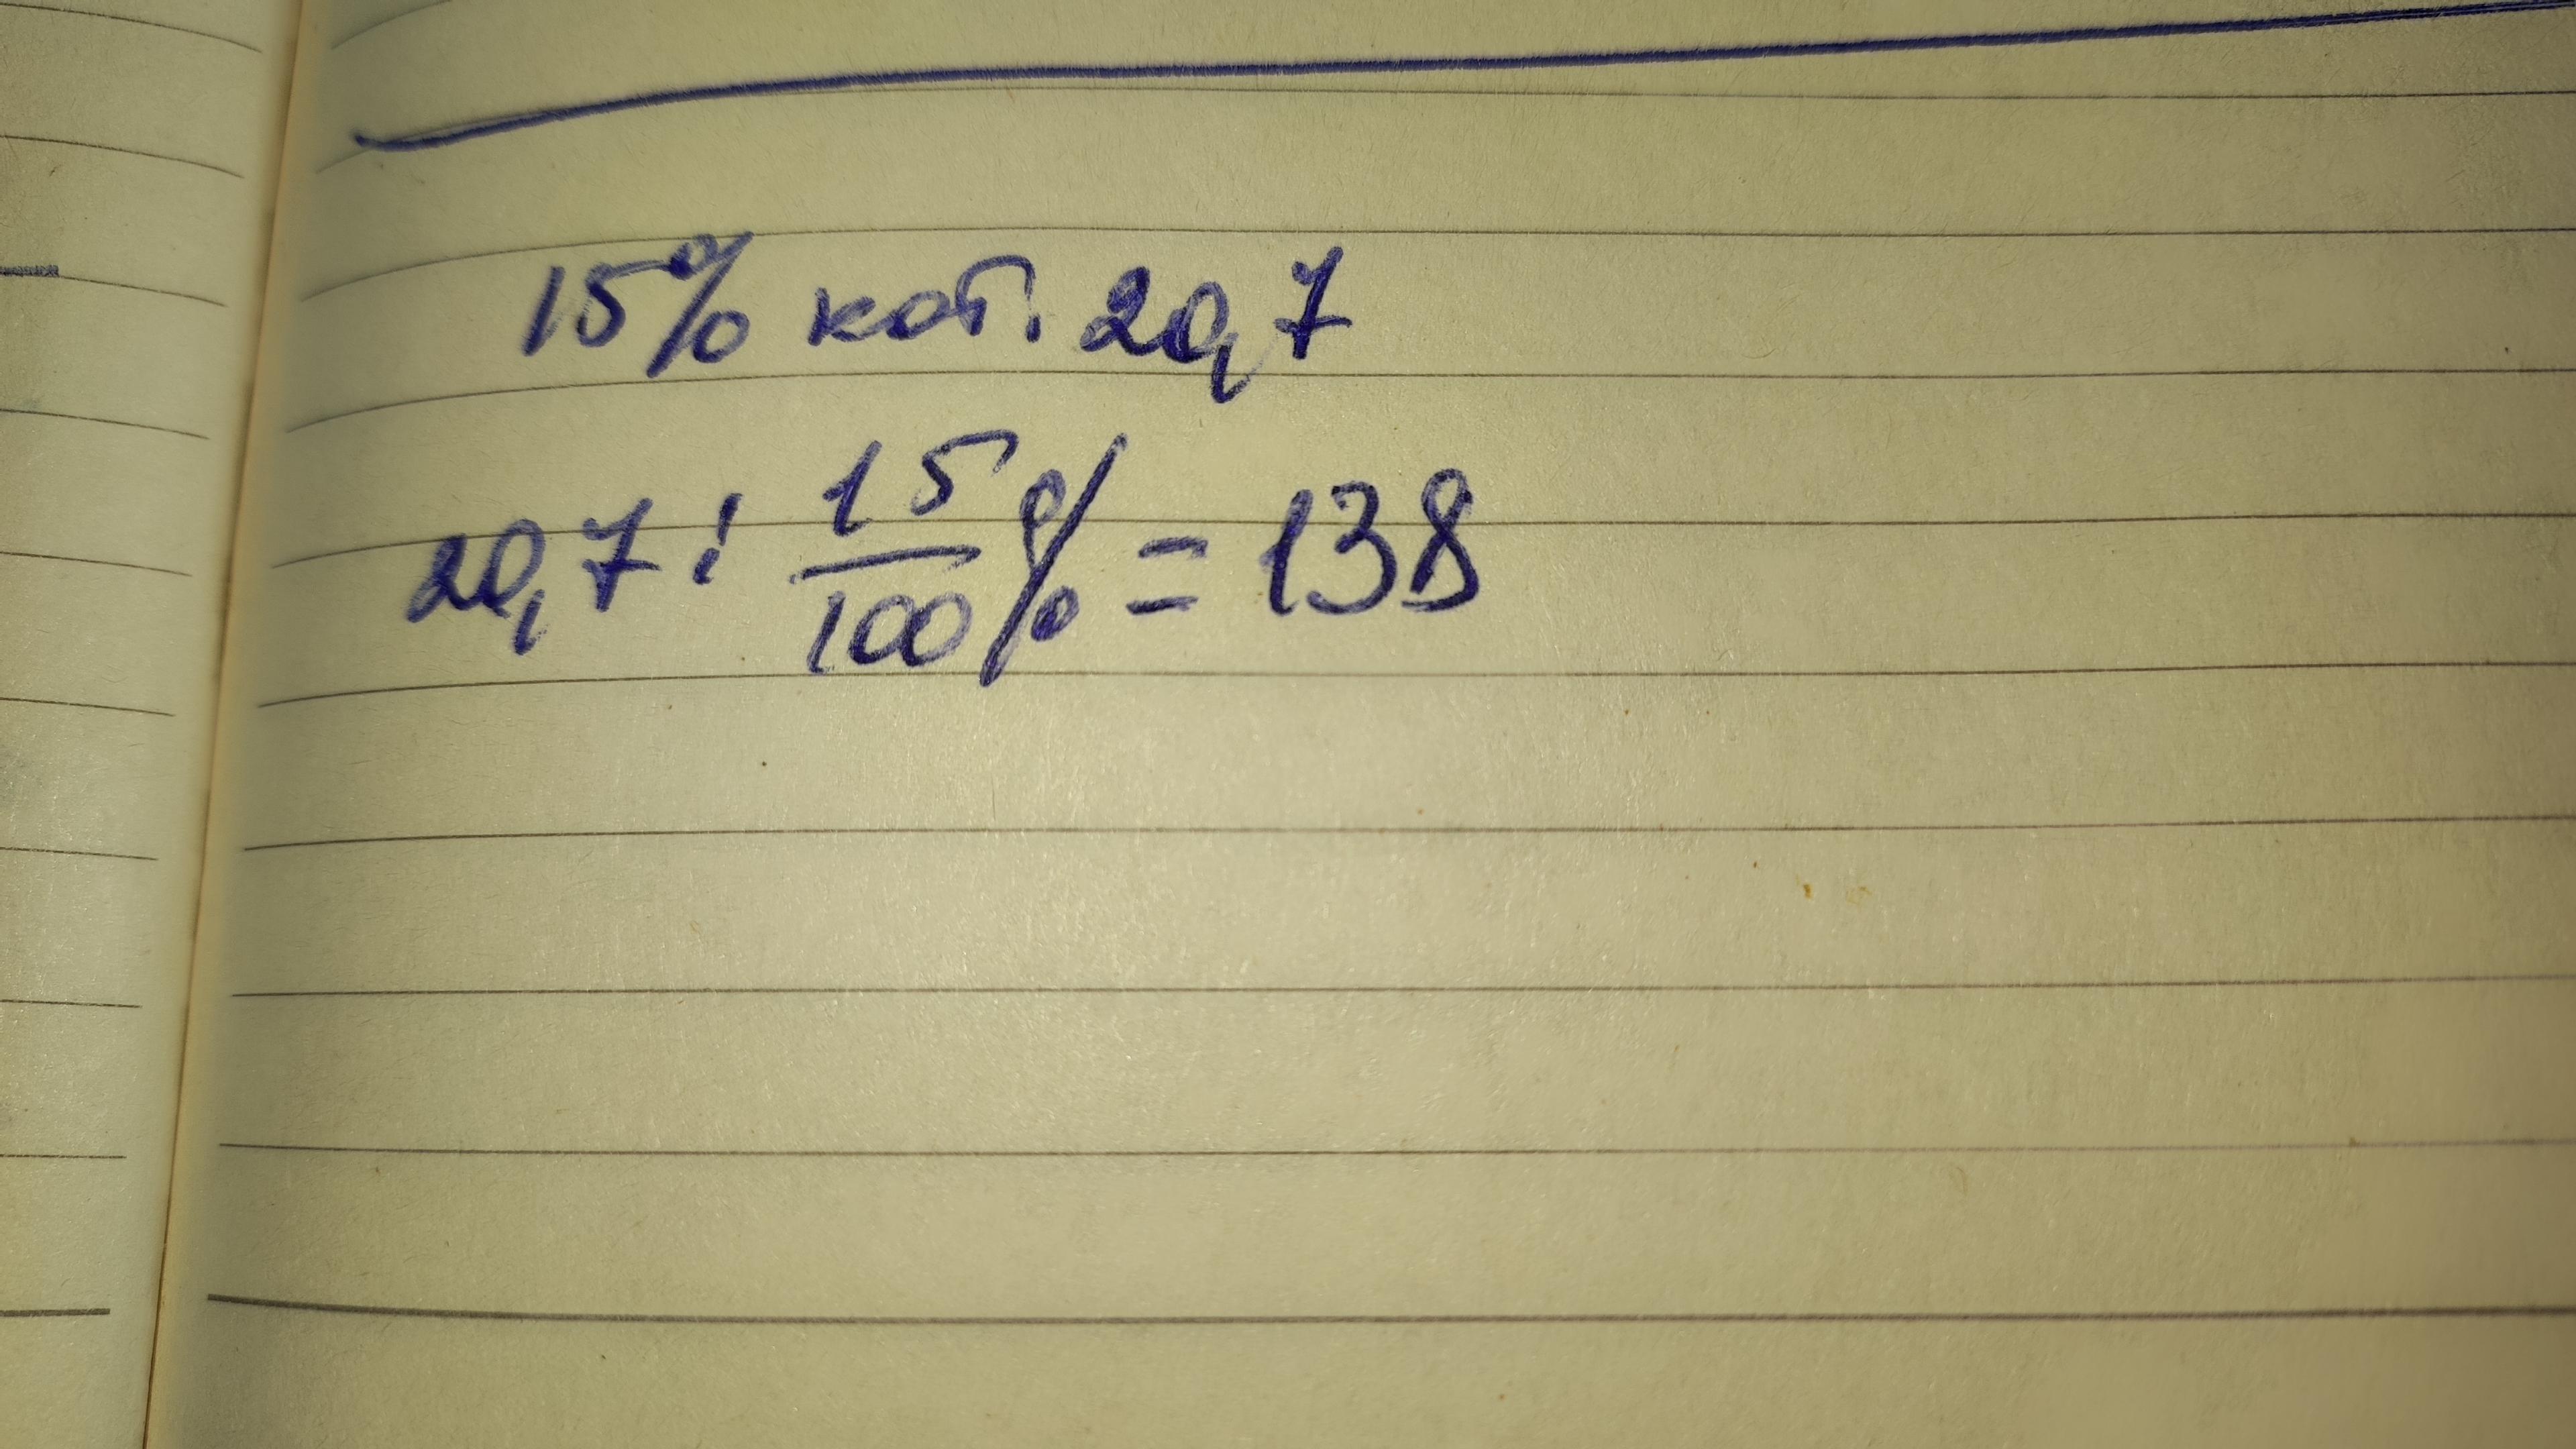 15% кот. 20,7
20,7 : 15/100 % = 138